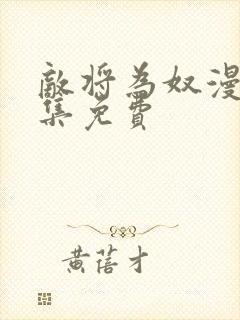 敵将為奴漫
集免費
黄蓓才